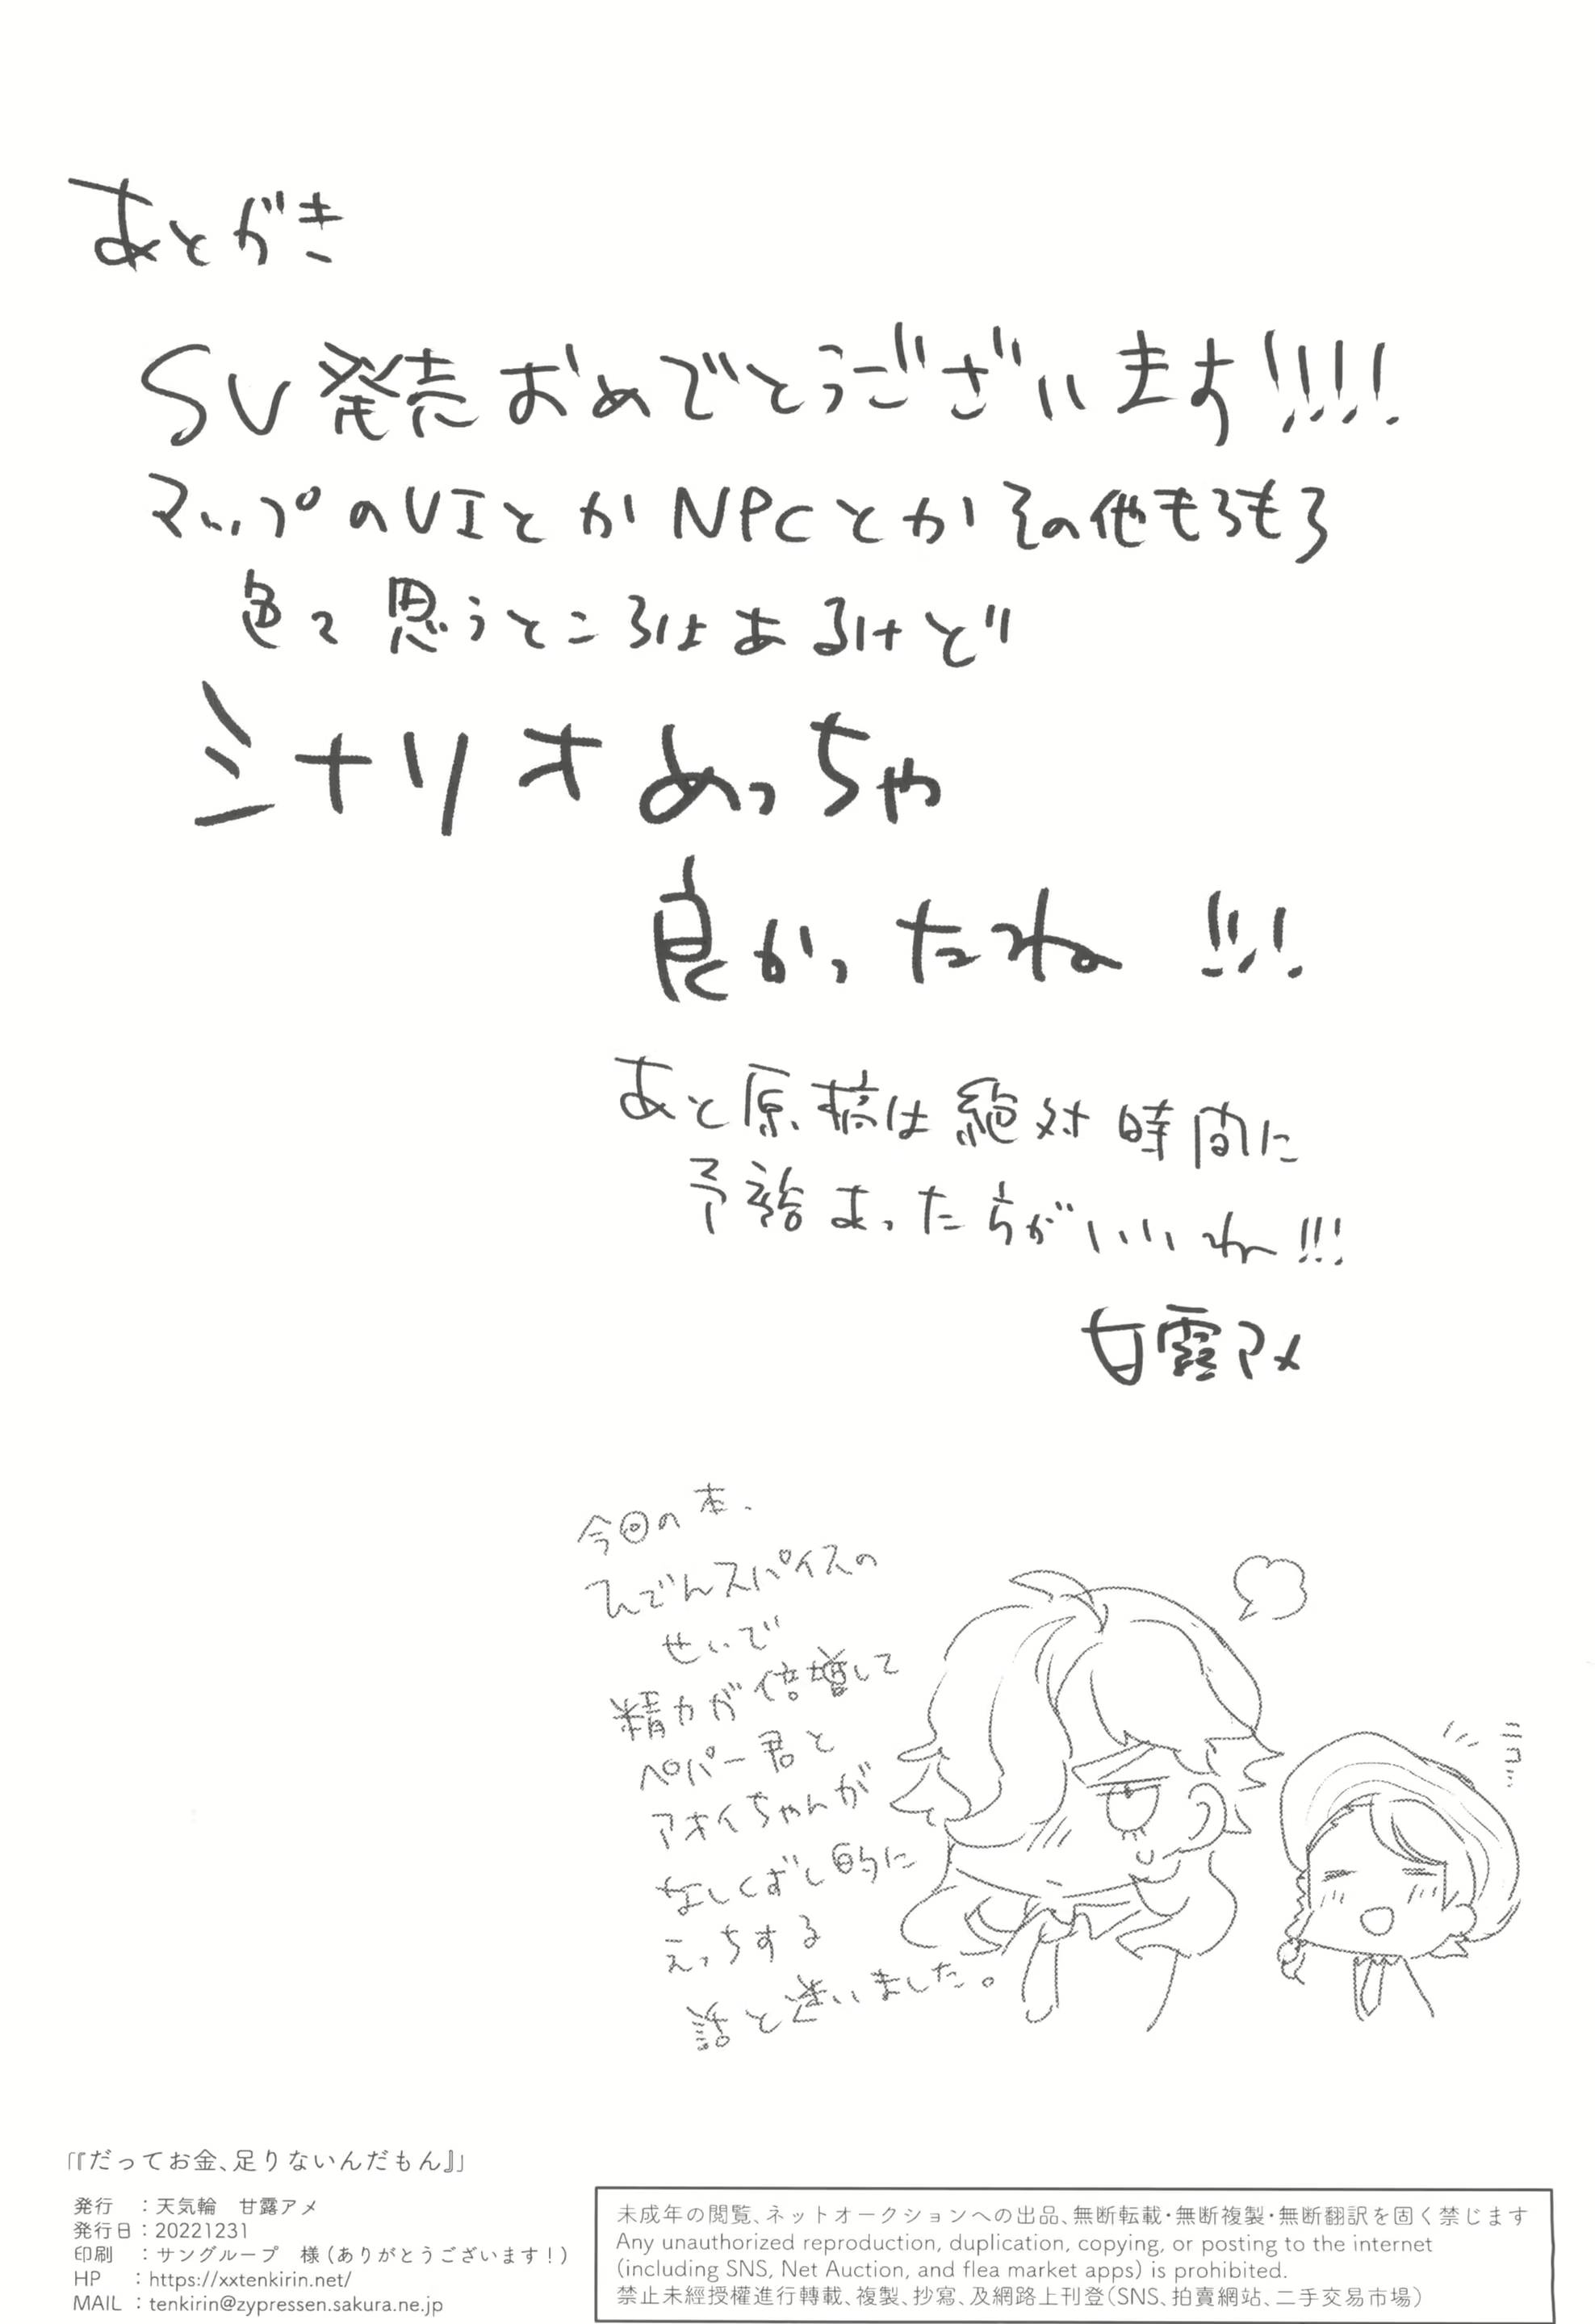 あとがき
SV発売おめでとうございます!!!!
マップのUIとかNPCとかその他もろもろ
色々思うところはあるけど
シナリオめっちゃ
良かったね!!!
あと原稿は絶対時間に
予裕あった方がいいね!!!
甘露アメ
今回の本、
ひでんスパイスの
せいで
精力が倍増して
ペパー君と
アオイちゃんが
なしくずし的に
えっちする
話と迷いました。
ニコニコ
「『だってお金、足りないんだもん』」
発行 :天気輪 甘露アメ
発行日:20221231
印刷 :サングループ 様(ありがとうございます!)
HP :https://xxtenkirin.net/
MAIL :tenkirin@zypressen.sakura.ne.jp
未成年の閲覧、ネットオークションへの出品、無断転載・無断複製・無断翻訳を固く禁じます
Any unauthorized reproduction, duplication, copying, or posting to the internet
(including SNS, Net Auction, and flea market apps) is prohibited.
禁止未經授權進行轉載、複製、抄寫、及網路上刊登(SNS、拍賣網站、二手交易市場)